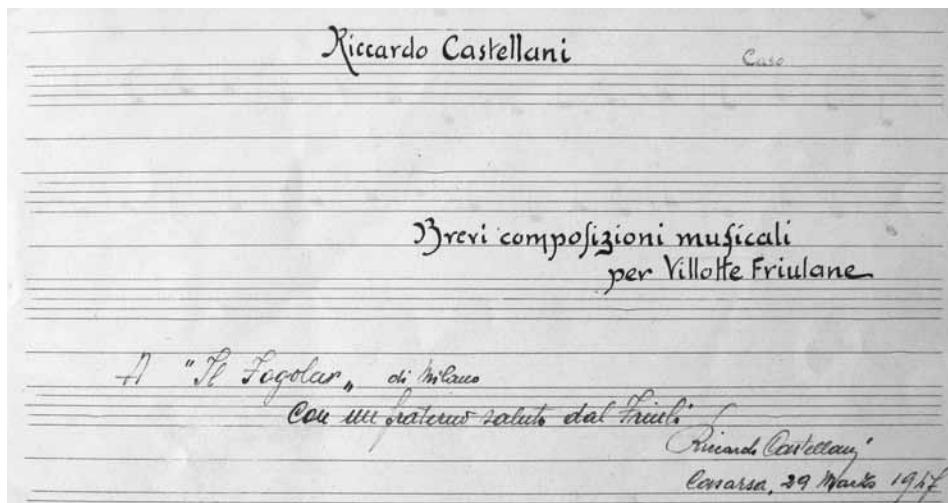 Riccardo Castellani
Caso
Brevi compoſizioni muſicali
per Villotte Friulane
A "Il Fogolar„ di Milano
Con un fraterno saluto dal Friuli
Riccardo Castellani
Casarsa, 29 Marzo 1947